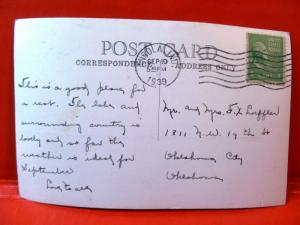 POST CARD
CORRESPONDENCE
ADDRESS ONLY
SEP 19
1939
This is a good place for
a rest. The lake and
surrounding country is
lovely and so far the
weather is ideal for
September
Love to all
Mr. and Mrs. F. X. Loeffler
1811 N.W. 19 th St
Oklahoma City
Oklahoma